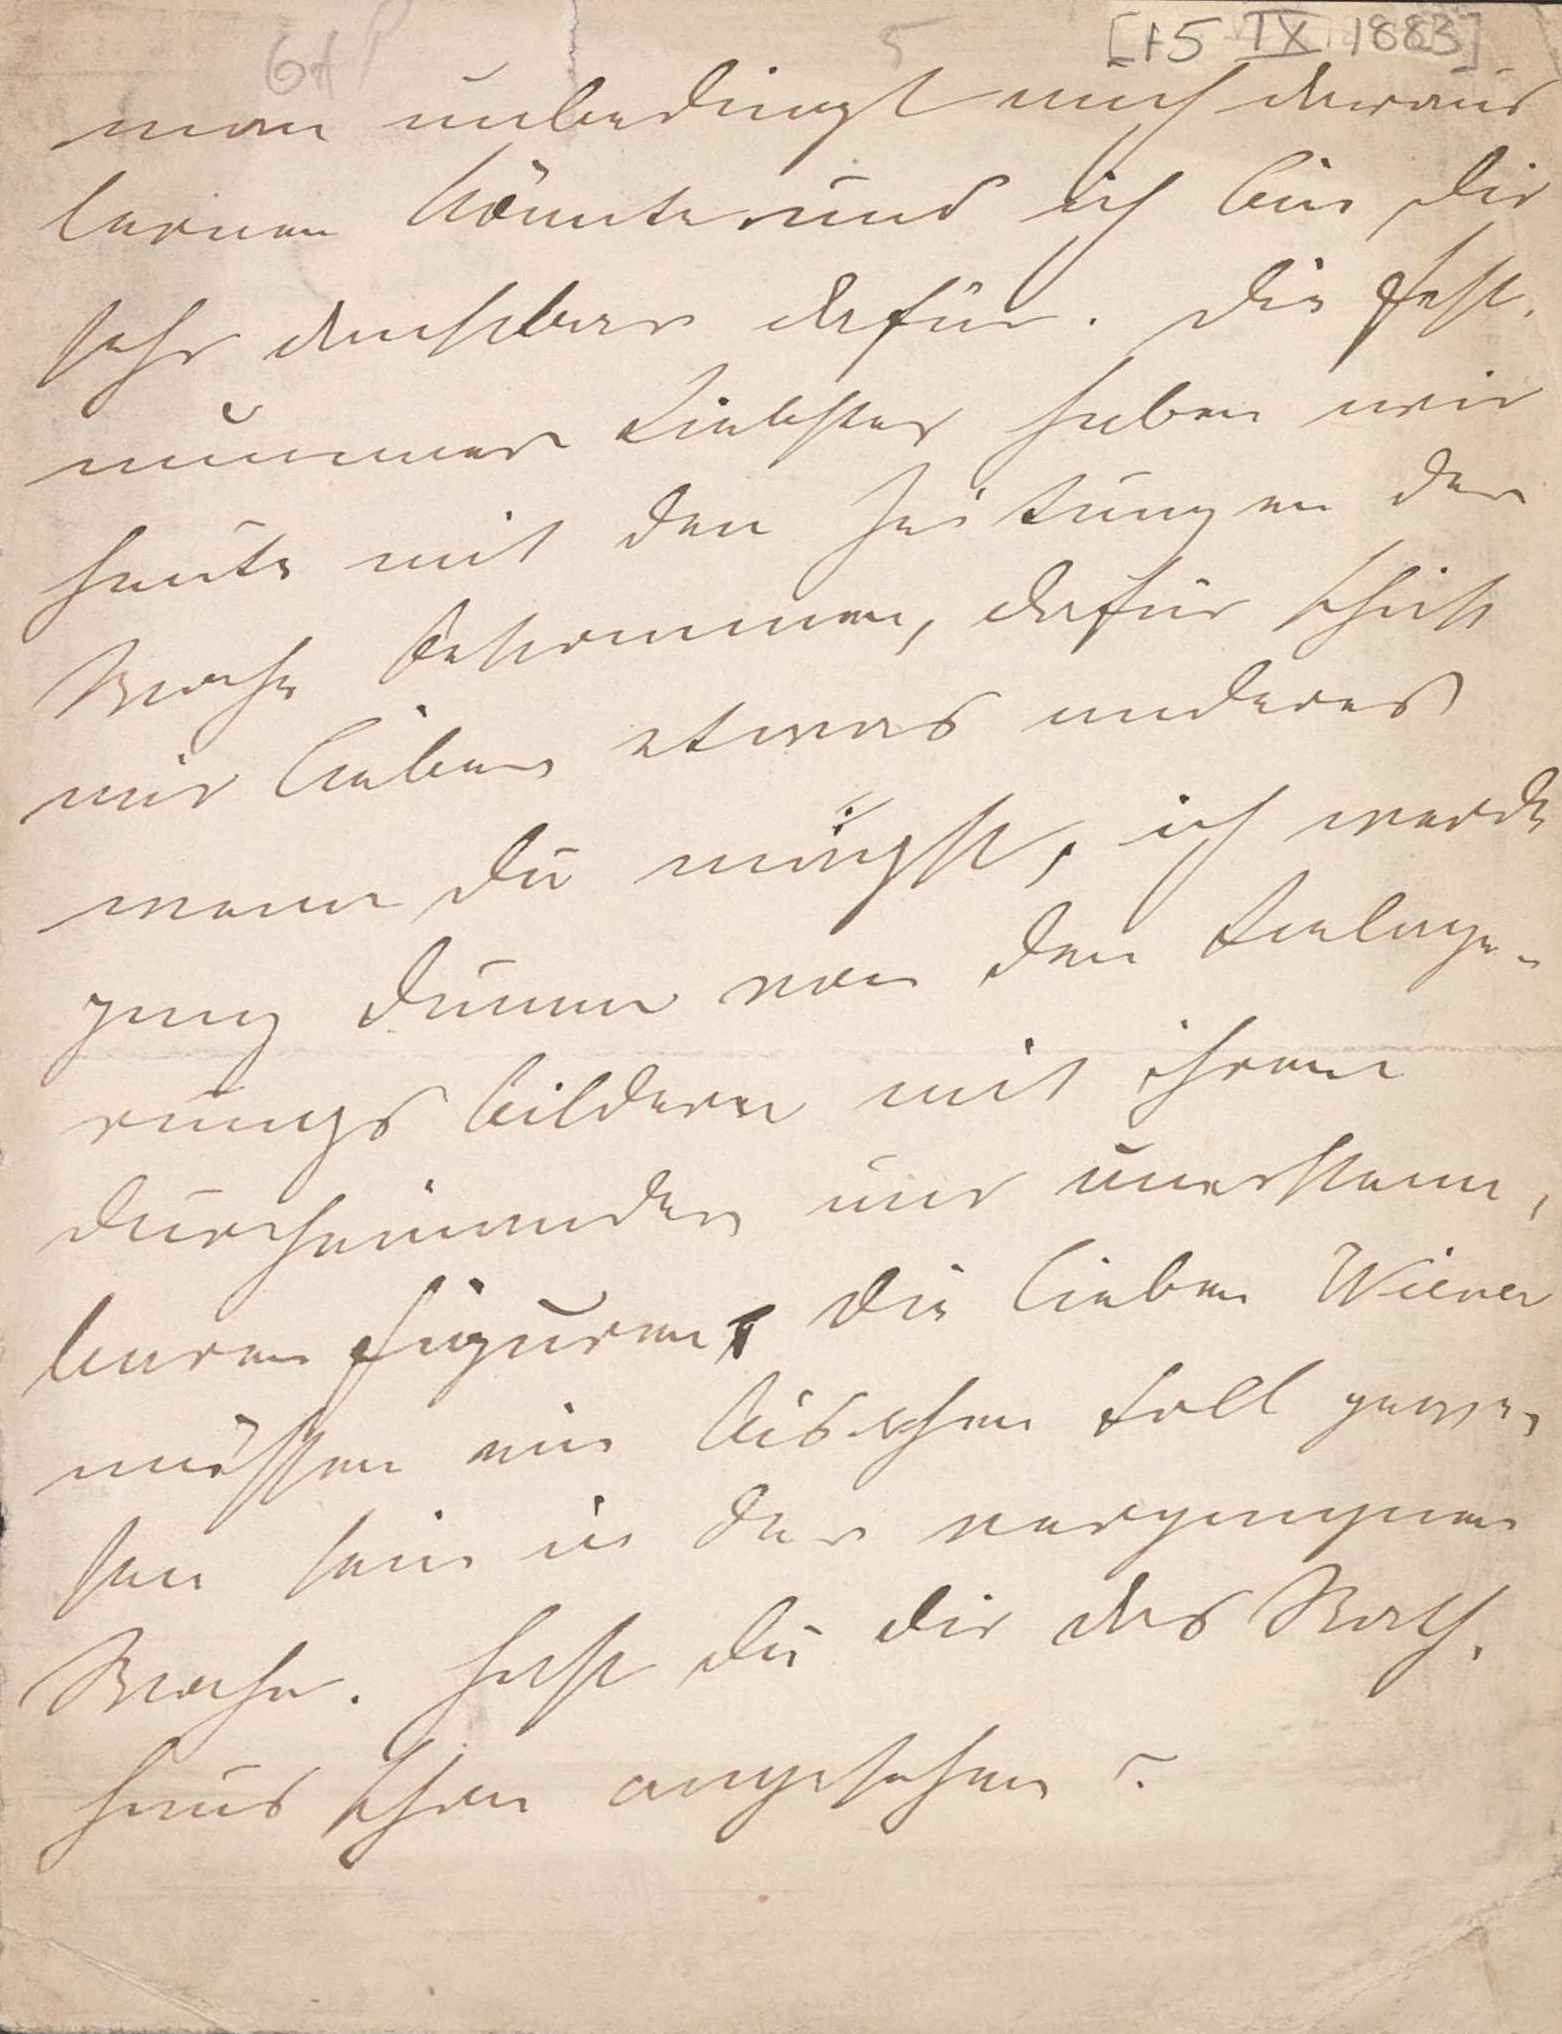 [15 IX 1883]
5
man unbedingt auch daraus
lernen könnte und ich bin Dir
sehr dankbar dafür. Die Fest-
nummer Liebster haben wir
heute mit den Zeitungen der
Woche bekommen, dafür schick
mir lieber etwas anderes
wenn Du magst, ich werde
ganz dumm von den Belage-
rungsbildern mit ihren
durcheinander mir unerkenn-
baren Figuren, die lieben Wiener
müssen ein bischen toll gewe-
sen sein in der vergangnen
Woche. Hast Du Dir das Rath-
haus schon angesehen?